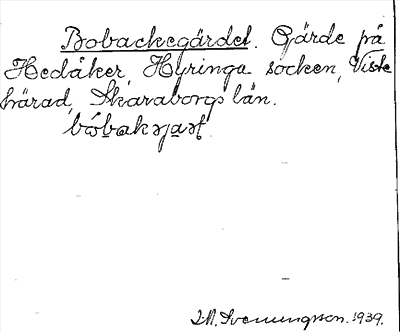 Bobackegärdet. Gärde på
Hedåker, Hyringa socken, Viste
härad, Skaraborgs län.
J.A. Svenungsson. 1939.